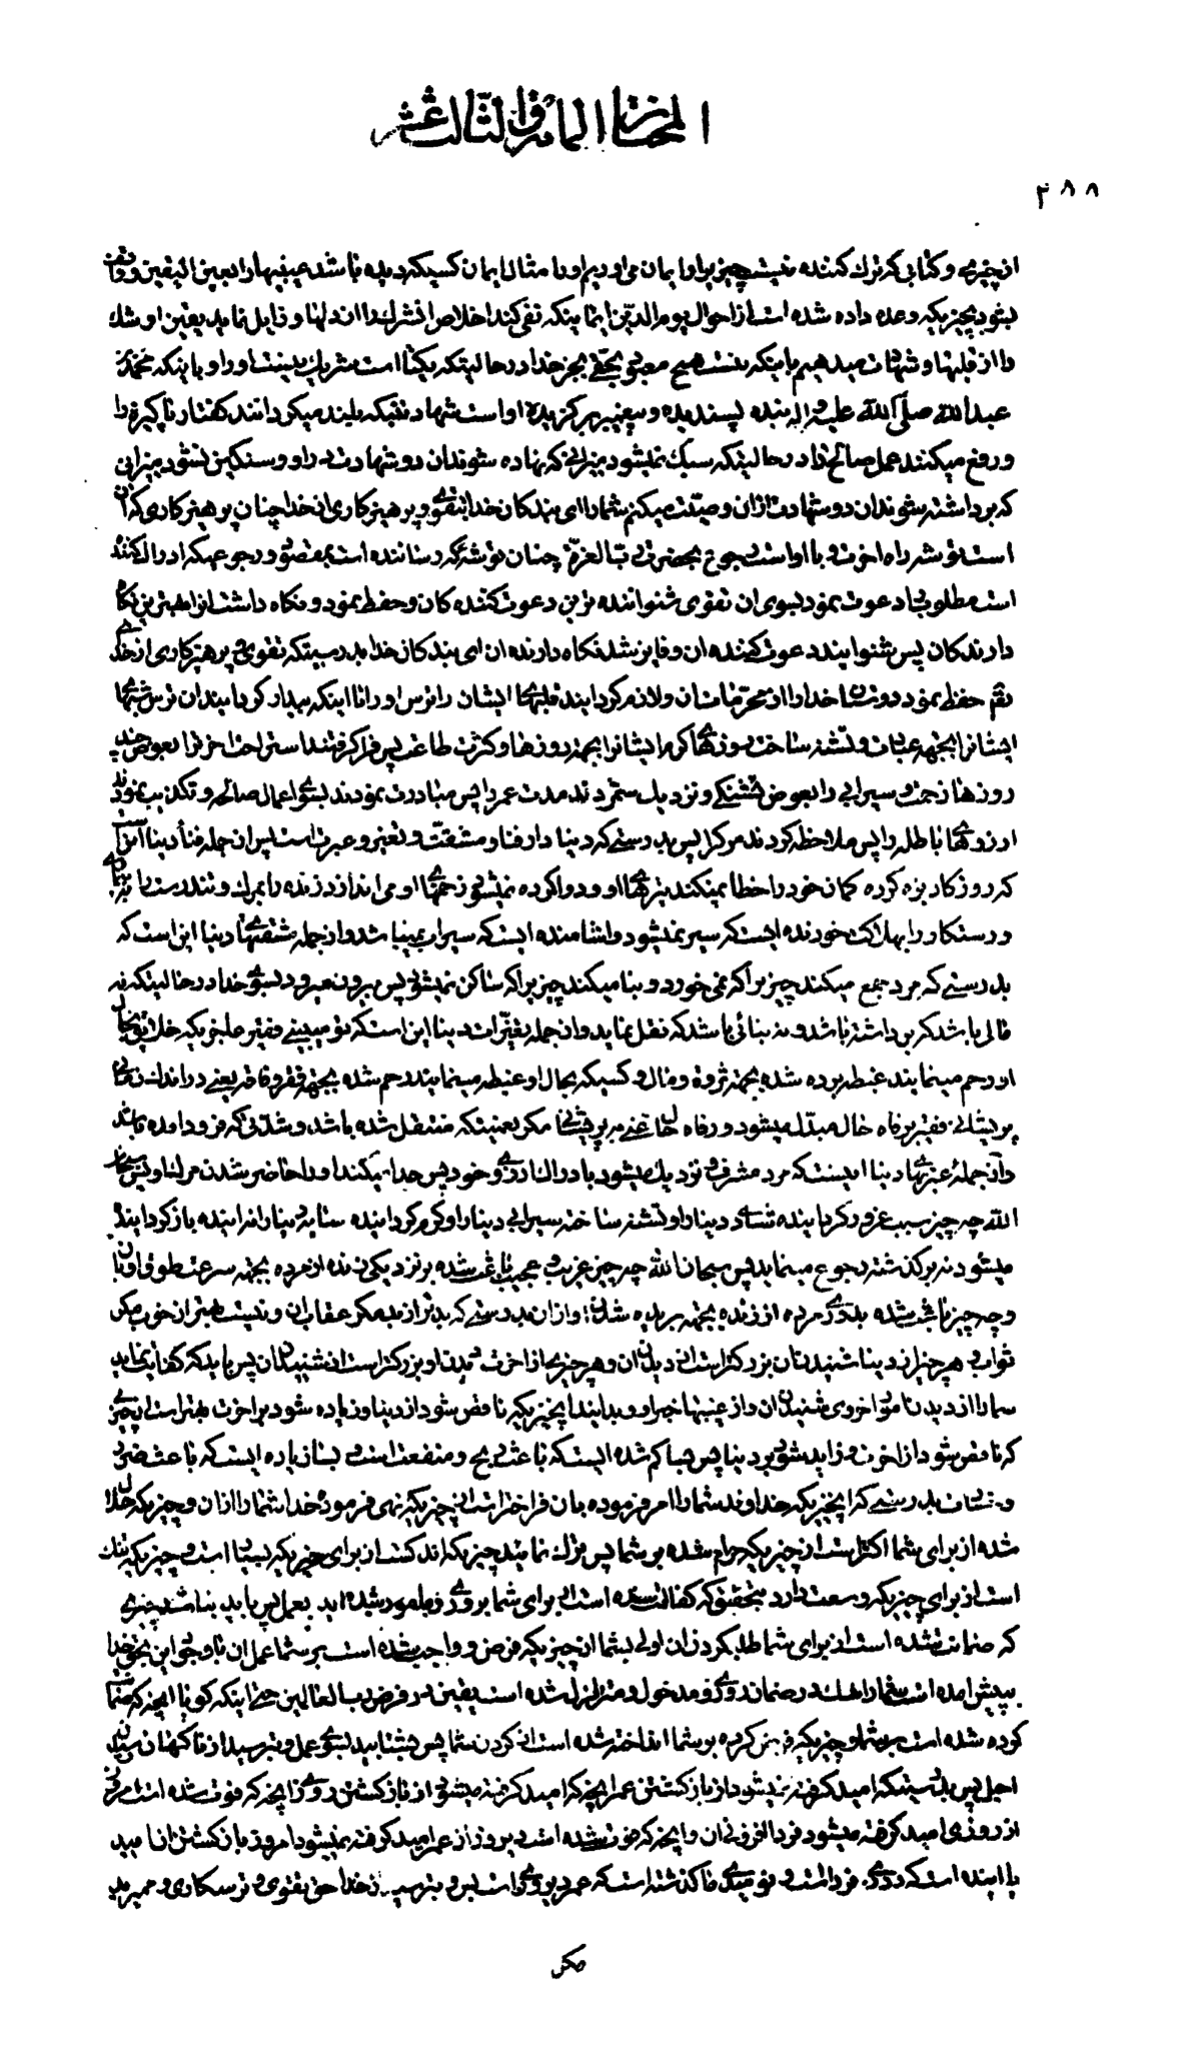 المختار المائة و الثالث عشر
۲۸۸
از چیزی و کتابی که ترک کننده نیست چیزیرا و ایمان می اوریم او را مثال ایمان کسیکه دیده باشد غیبها را بعین الیقین و واقف
بشود بچیزیکه وعده داده شده است از احوال یوم الدین ایمانیکه نفی کند اخلاص ان شرک را از دلها و زایل نماید یقین او شک
را از قلبها و شهادت میدهیم باینکه نیست هیچ معبودی بحقی بجز خدا در حالیتکه یکتا است شریک نیست او را و باینکه محمد بن
عبدالله صلی الله علیه و اله بنده پسندیده و پیغمبر برگزیده او است شهادتینیکه بلند میگردانند گفتار پاکیزه را
و رفع میکنند عمل صالح را در حالیتکه سبک نمیشود میزانی که نهاده شوند ان دو شهادت در او و سنگین نشود میزانی
که برداشته شوند ان دو شهادت از ان وصیت میکنم شما را ای بندگان خدا بتقوی و پرهیزکاری از خدا چنان پرهیزکاری که ان
است توشه راه اخرت و با او است رجوع بحضرت رب العزة چنان توشه که رساننده است بمقصود و رجوعیکه ادراک کننده
است مطلوب را دعوت نمود بسوی ان تقوی شنواننده ترین دعوت کننده کان و حفظ نمود و نگاه داشت انرا بهترین نگاه
دارندکان پس شنوانید دعوت کننده ان و فایز شد نگاه دارنده ان ای بندکان خدا بدرستیکه تقوی و پرهیزکاری از خدای
حفظ نمود دوستان خدا را از محرمات شان و لازم گردانید قلبهای ایشان را ترس او را تا اینکه بیدار گردانید ان ترس شبهای
ایشانرا بجهة عبادت و تشنه ساخت روزهای گرم ایشانرا بجهة روزها و کثرت طاعت پس فرا گرفتند استراحت اخرترا بعوض چند
روزها زحمت و سیرابی را بعوض تشنگی و نزدیک شمردند مدت عمر را پس مبادرت نمودند بسوی اعمال صالحه و تکذیب نمودند
ارزوهای باطله را پس ملاحظه کردند مرگرا پس بدرستی که دنیا دار فنا و مشقت و تغیر و عبرت است پس از جمله فناء دنیا
که روزکار بزه کرده کمان خود را خطا نمیکند تیرهای او و دوا کرده نمیشود زخمهای او می اندازد زنده را بمرگ و تندرست را
و رستکار را بهلاکت خورنده ایست که سیر نمیشود و اشامنده ایست که سیراب نمیباشد و از جمله مشقتهای دنیا این است که
بدرستی که مرد جمع میکند چیزیرا که نمی خورد و بنا میکند چیزیرا که ساکن نمیشود پس بیرون میرود بسوی خدا در حالیتکه نه
مالی باشد که برداشته باشد و نه بنائی باشد که نقل نماید و از جمله تغیرات دنیا این است که تو میبینی فقیر عاجزیکه خلایق بحال
او رحم مینمایند غبطه برده شده بجهة ثروة و مال و کسیکه بحال او غبطه مینمایند رحم شده بجهة فقر و فاقه یعنی در اندک زمانی
پریشانی فقیر برفاه حال مبدل میشود و رفاه حال غنی بپریشانی مگر نعمتیکه منتقل شده باشد و شدتی که فرود امده باشد
و از جمله عبرتهای دنیا اینست که مرد مشرف و نزدیک میشود بادراک ارزوی خود پس جدا میکند او را حاضر شدن مرگ او پس سبحان
الله چه چیز سبب غرور گردانیده شادی دنیا را و تشنه ساخته سیرابی دنیا را و گرم گردانیده سایه دنیا را نه اینده باز گردانیده
میشود نه برگذشته رجوع مینماید پس سبحان الله چه چیز غریب و عجیب باعث شده بر نزدیکی زنده از مرده بجهة سرعت لحوق او بان
و چه چیز باعث شده بدوری مرده از زنده بجهة بریده شدن او از ان بدرستی که بدتر از بد مگر عقاب ان و نیست بهتر از خوب مگر
ثواب و هر چیز از دنیا شنیدن ان بزرکتر است از دیدن ان و هر چیزی از اخرت دیدن او بزرکتر است از شنیدن ان پس باید که کفایت نماید
شما را از دیدن امور اخروی شنیدن ان و از غیبها خبر او و بدانید انچیزیکه ناقص شود از دنیا و زیاده شود براخرت بهتر است از چیزی
که ناقص شود از اخرت و زاید شود بر دنیا پس بسا کم شده ایست که باعث ربح و منفعت است و بسا زیاده ایست که باعث ضرر
و خسران بدرستی که انچیزیکه خداوند شما را امر فرموده بان فراختر است از چیزیکه نهی فرموده خدا شما را از ان و چیزیکه حلال
شده از برای شما اکثر است از چیزیکه حرام شده بر شما پس ترک نمائید چیزیکه اندک است از برای چیزیکه بسیار است و چیزیکه تنک
است از برای چیزیکه وسعت دارد بتحقیق که کفالت شده است از برای شما بروزی و مامور شده اید بعمل پس باید نباشد چیزی
که ضمانت شده است از برای شما طلب کردن ان اولی بشما از چیزیکه فرض و واجب شده است بر شما عمل ان با وجود این بحق خدا
بپیش امده است شما را شک در ضمان روزی و مدخول و متزلزل شده است یقین در فرض رب العالمین حتی اینکه کویا انچه که ضمانت
کرده شده است بر شما و چیزیکه فرض کرده بر شما انداخته شده است از گردن شما پس بشتابید بسوی عمل و بترسید از ناکهان رسیدن
اجل پس بدرستیکه امید گرفته نمیشود از بازگشتن عمر انچه که امید گرفته میشود از بازگشتن روزی انچه که فوت شده است امروز
از روزی امید گرفته میشود فردا افزونی ان و انچه که فوت شده است دیروز از عمر امید گرفته نمیشود امروز بازگشتن ان امید
با اینده است که روزی فردا است و نومیدی با گذشته است که عمر دیروزی است پس بترسید از خدا حق تقوی و ترسکاری و نمیرید
مگر